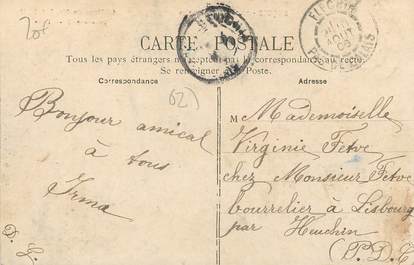 20f
CARTE POSTALE
Tous les pays étrangers n'acceptent pas la correspondance au recto.
Se renseigner à la Poste.
Correspondance
Adresse
(62)
Bonjour amical
à tous
Irma
D. L.
M Mademoiselle
Virginie Fetve
chez Monsieur Fetve
bourrelier à Lisbourg
par Heuchin
(P. D. C